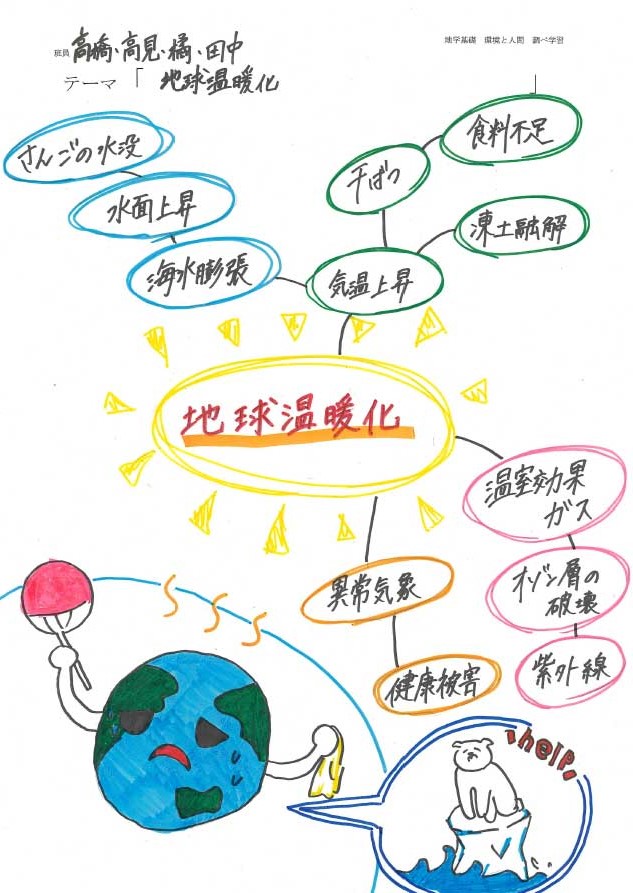 地学基礎 環境と人間 調べ学習
班員 高橋・高見・橘・田中
テーマ「 地球温暖化
食料不足
さんごの水没
干ばつ
水面上昇
凍土融解
海水膨張
気温上昇
地球温暖化
温室効果
ガス
異常気象
オゾン層の
破壊
健康被害
紫外線
help